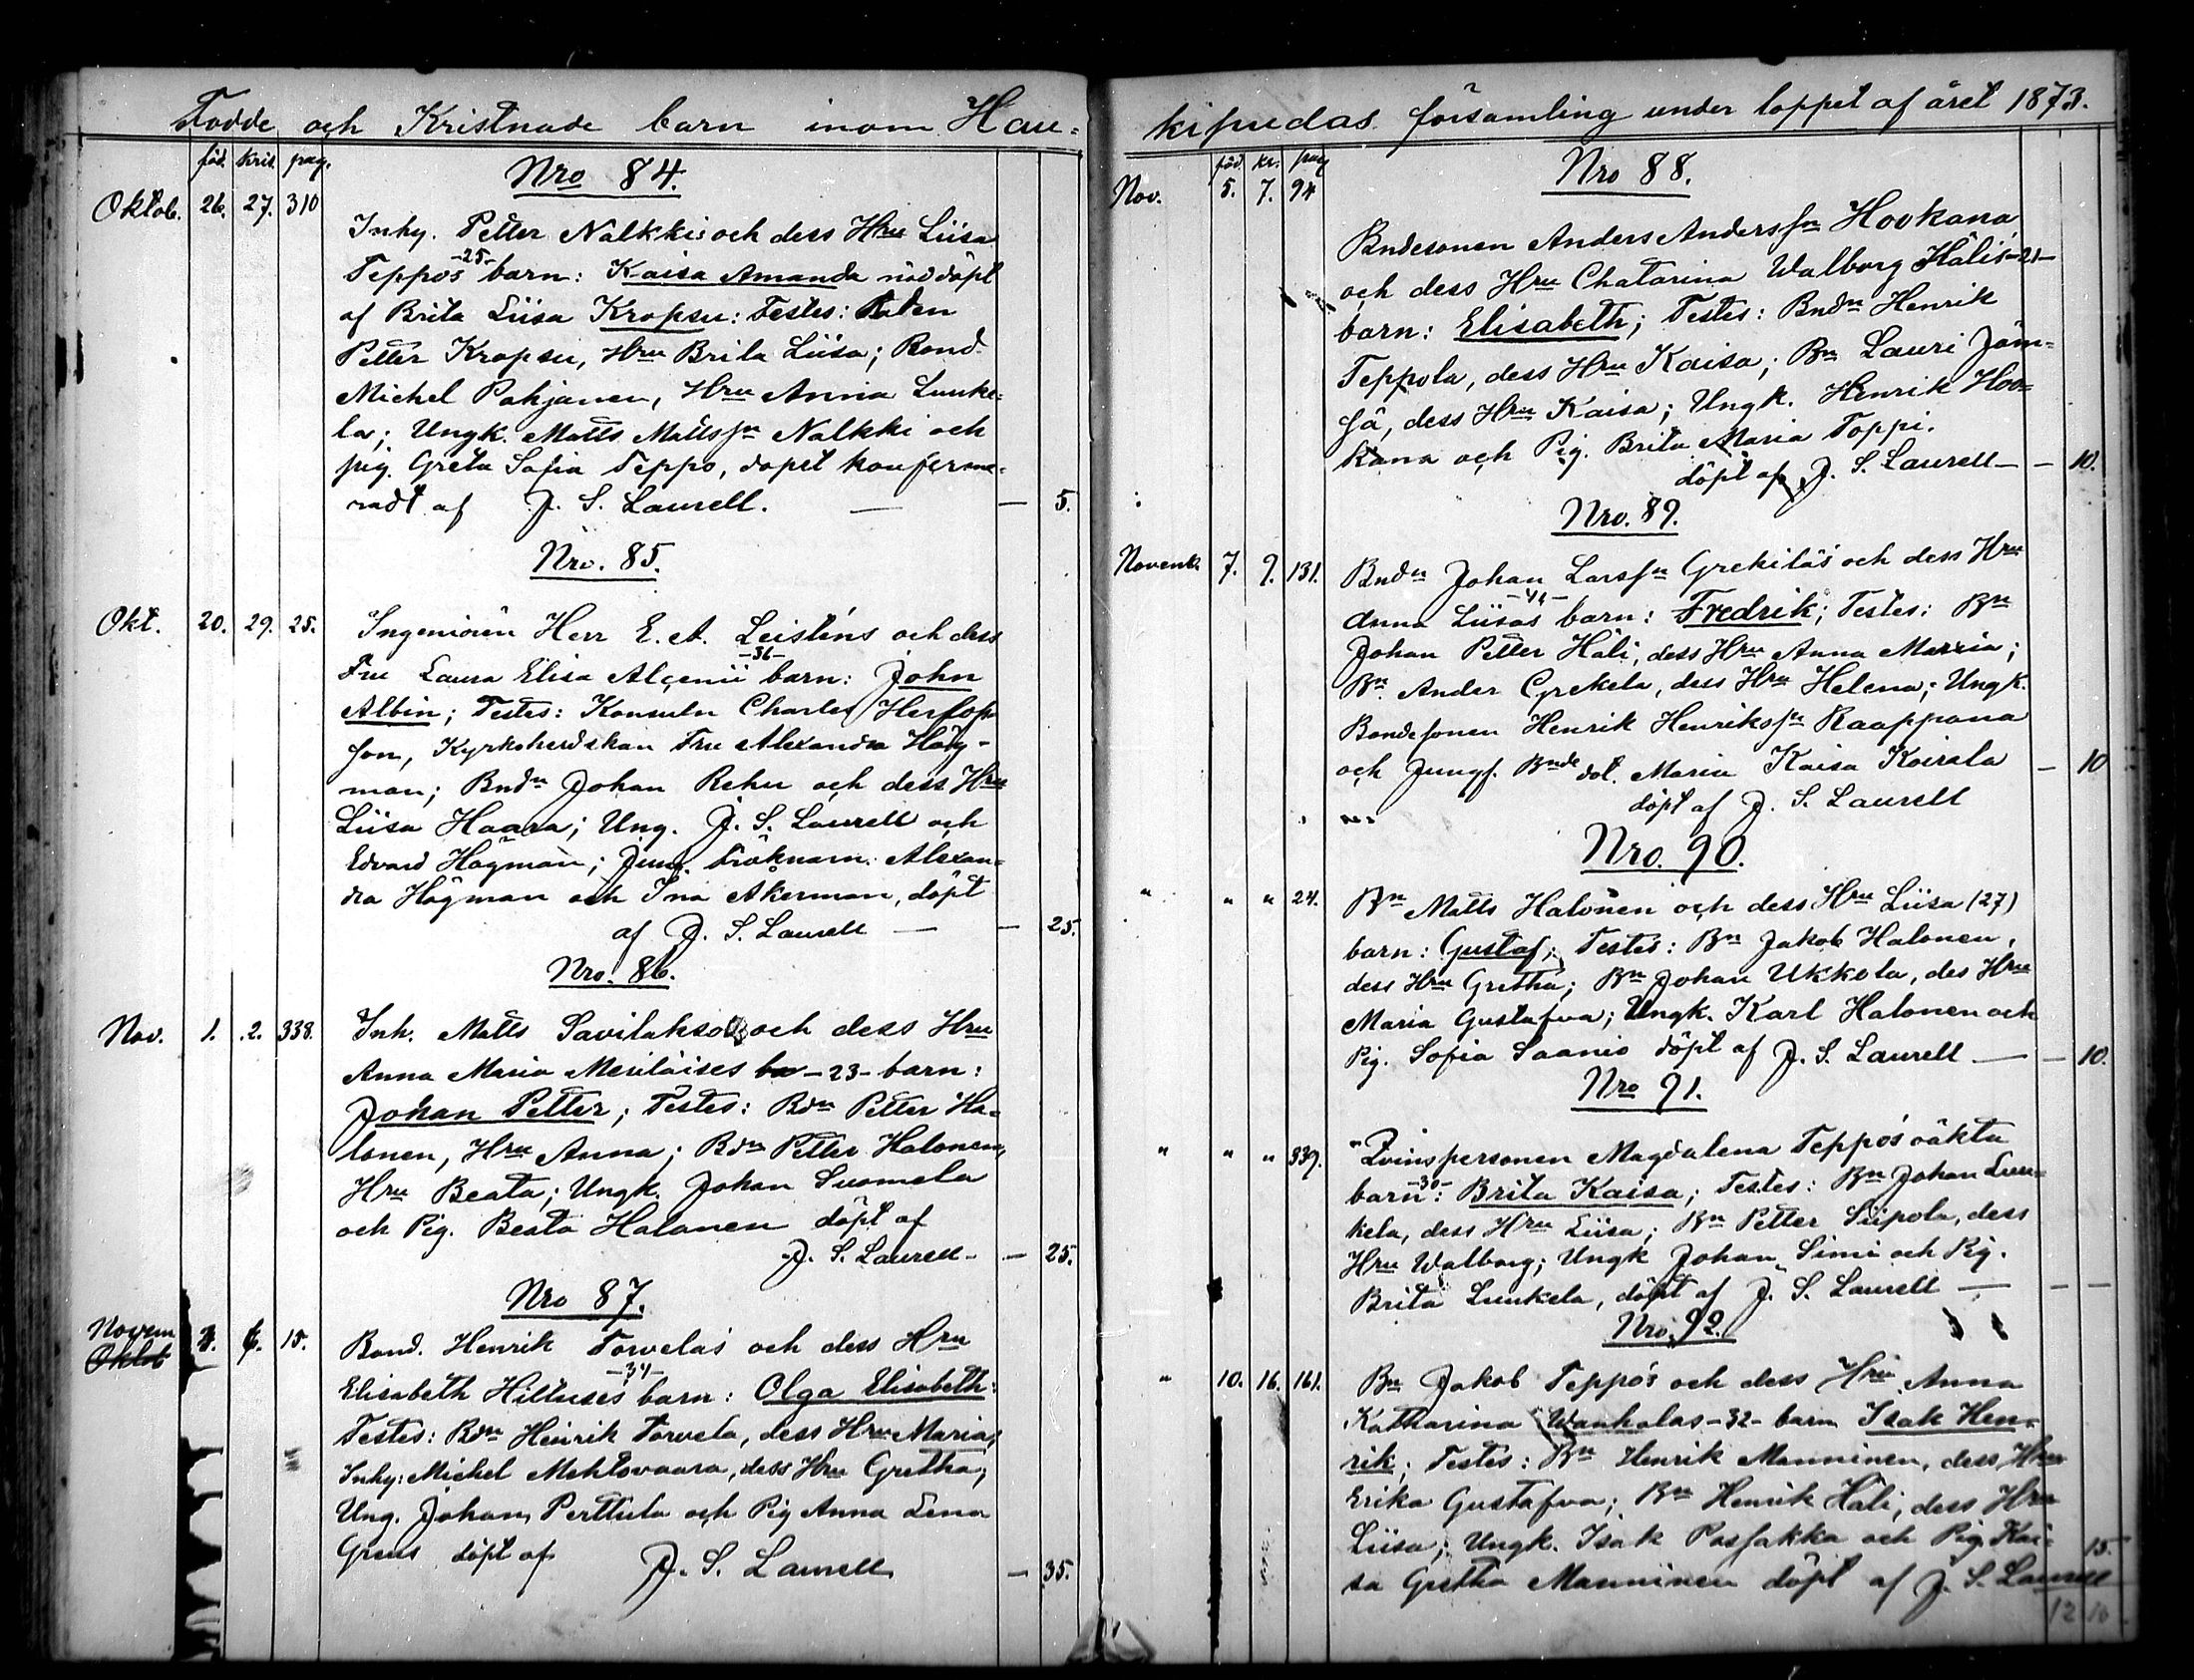 Födde och Kristnade barn inom Hau-
föd. kris. pag.
Nro 84.
Oktob. 26. 27. 310
Inhy. Petter Nalkki och dess Hru Liisa
Teppos -25- barn: Kaisa Amanda nöddöpt
af Brita Liisa Kropsu: Testes:
Petter Kropsu, Hru Brita Liisa; Bond
Michel Pohjanen, Hru Anna Lunke-
la; Ungk. Matts Mattssn Nalkki och
pig. Greta Sofia Teppo, dopet konferme-
radt af J. S. Laurell. — — 5.
Nro. 85.
Okt. 20. 29. 25. Ingeniören Herr E. A. Leisténs och dess
Fru Laura Elisa Alcenii -36- barn: John
Albin; Testes: Konsuln Charles
son, Kyrkoherdskan Fru Alexandra Hög-
man; Bndn Johan Rehu och dess Hru
Liisa Haara; Ung. J. S. Laurell och
Edvard Högman; Jung. Fröknarn. Alexan-
dra Högman och Ina Åkerman, döpt
af J. S. Laurell — — 25.
Nro. 86.
Nov. 1. 2. 338. Inh. Matts Savilakso och dess Hru
Anna Maria Meriläises ba -23- barn:
Johan Petter; Testes: Bdn Petter Ha-
lonen, Hru Anna; Bdn Petter Halonen,
Hru Beata; Ungk. Johan Suomela
och Pig. Beata Halonen döpt af
J. S. Laurell - — 25.
Nro 87.
Novem
Oktob 6. 15. Bond. Henrik Torvelas och dess Hru
Elisabeth Hiltuses -34- barn: Olga Elisabeth:
Testes: Bdn Heinrik Torvela, dess Hru Maria;
Inhy: Michel Mehtovaara, dess Hru Gretha;
Ung. Johan Perttula och Pig Anna Lena
Greus döpt af J. S. Laurell — 35.
kipudas församling under loppet af året 1873.
föd. kr. pag
Nro 88.
Nov. 5. 7. 94
Bndesonen Anders Anderssn Hookana,
och dess Hru Chatarina Walborg Hälis -21-
barn: Elisabeth; Testes: Bndn Henrik
Teppola, dess Hru Kaisa; Bn Lauri Jäm-
sä, dess Hru Kaisa; Ungk. Henrik Hoo-
kana och Pig. Brita Maria Toppi.
döpt af J. S. Laurell — — 10.
Nro. 89.
Novemb. 7. 9. 131. Bndn Johan Larssn Grekiläs och dess Hru
Anna Liisas -44- barn: Fredrik; Testes: Bn
Johan Petter Häli, dess Hru Anna Maria;
Bn. Ander Grekela, dess Hru Helena; Ungk.
Bondesonen Henrik Henrikssn Raappana
och Jungf. Bnde dot. Maria Kaisa Koirala — 10
döpt af J. S. Laurell
Nro. 90.
" " " 24. Bn Matts Halonen och dess Hru Liisa (27)
barn: Gustaf; Testes: Bn Jakob Halonen,
dess Hru Gretha; Bn Johan Ukkola, des Hru
Maria Gustafva; Ungk. Karl Halonen och
Pig. Sofia Saanio döpt af J. S. Laurell — — 10.
Nro 91.
" " " 339. Qvinspersonen Magdalena Teppos oäkta
barn -30-: Brita Kaisa; Testes: Bn Johan Lun-
kela, dess Hru Liisa; Bn Petter Siipola, dess
Hru Walborg; Ungk Johan Simi och Pig.
Brita Lunkela, döpt af J. S. Laurell — — —
Nro. 92.
" 10. 16. 161. Bn Jakob Teppos och dess Hru Anna
Katharina Wanhalas -32- barn Isak Hen-
rik; Testes: Bn Henrik Manninen, dess Hru
Erika Gustafva; Bn Henrik Häli, dess Hru
Liisa; Ungk. Isak Passakka och Pig. Kai-
sa Gretha Manninen döpt af J. S. Laurell 15.